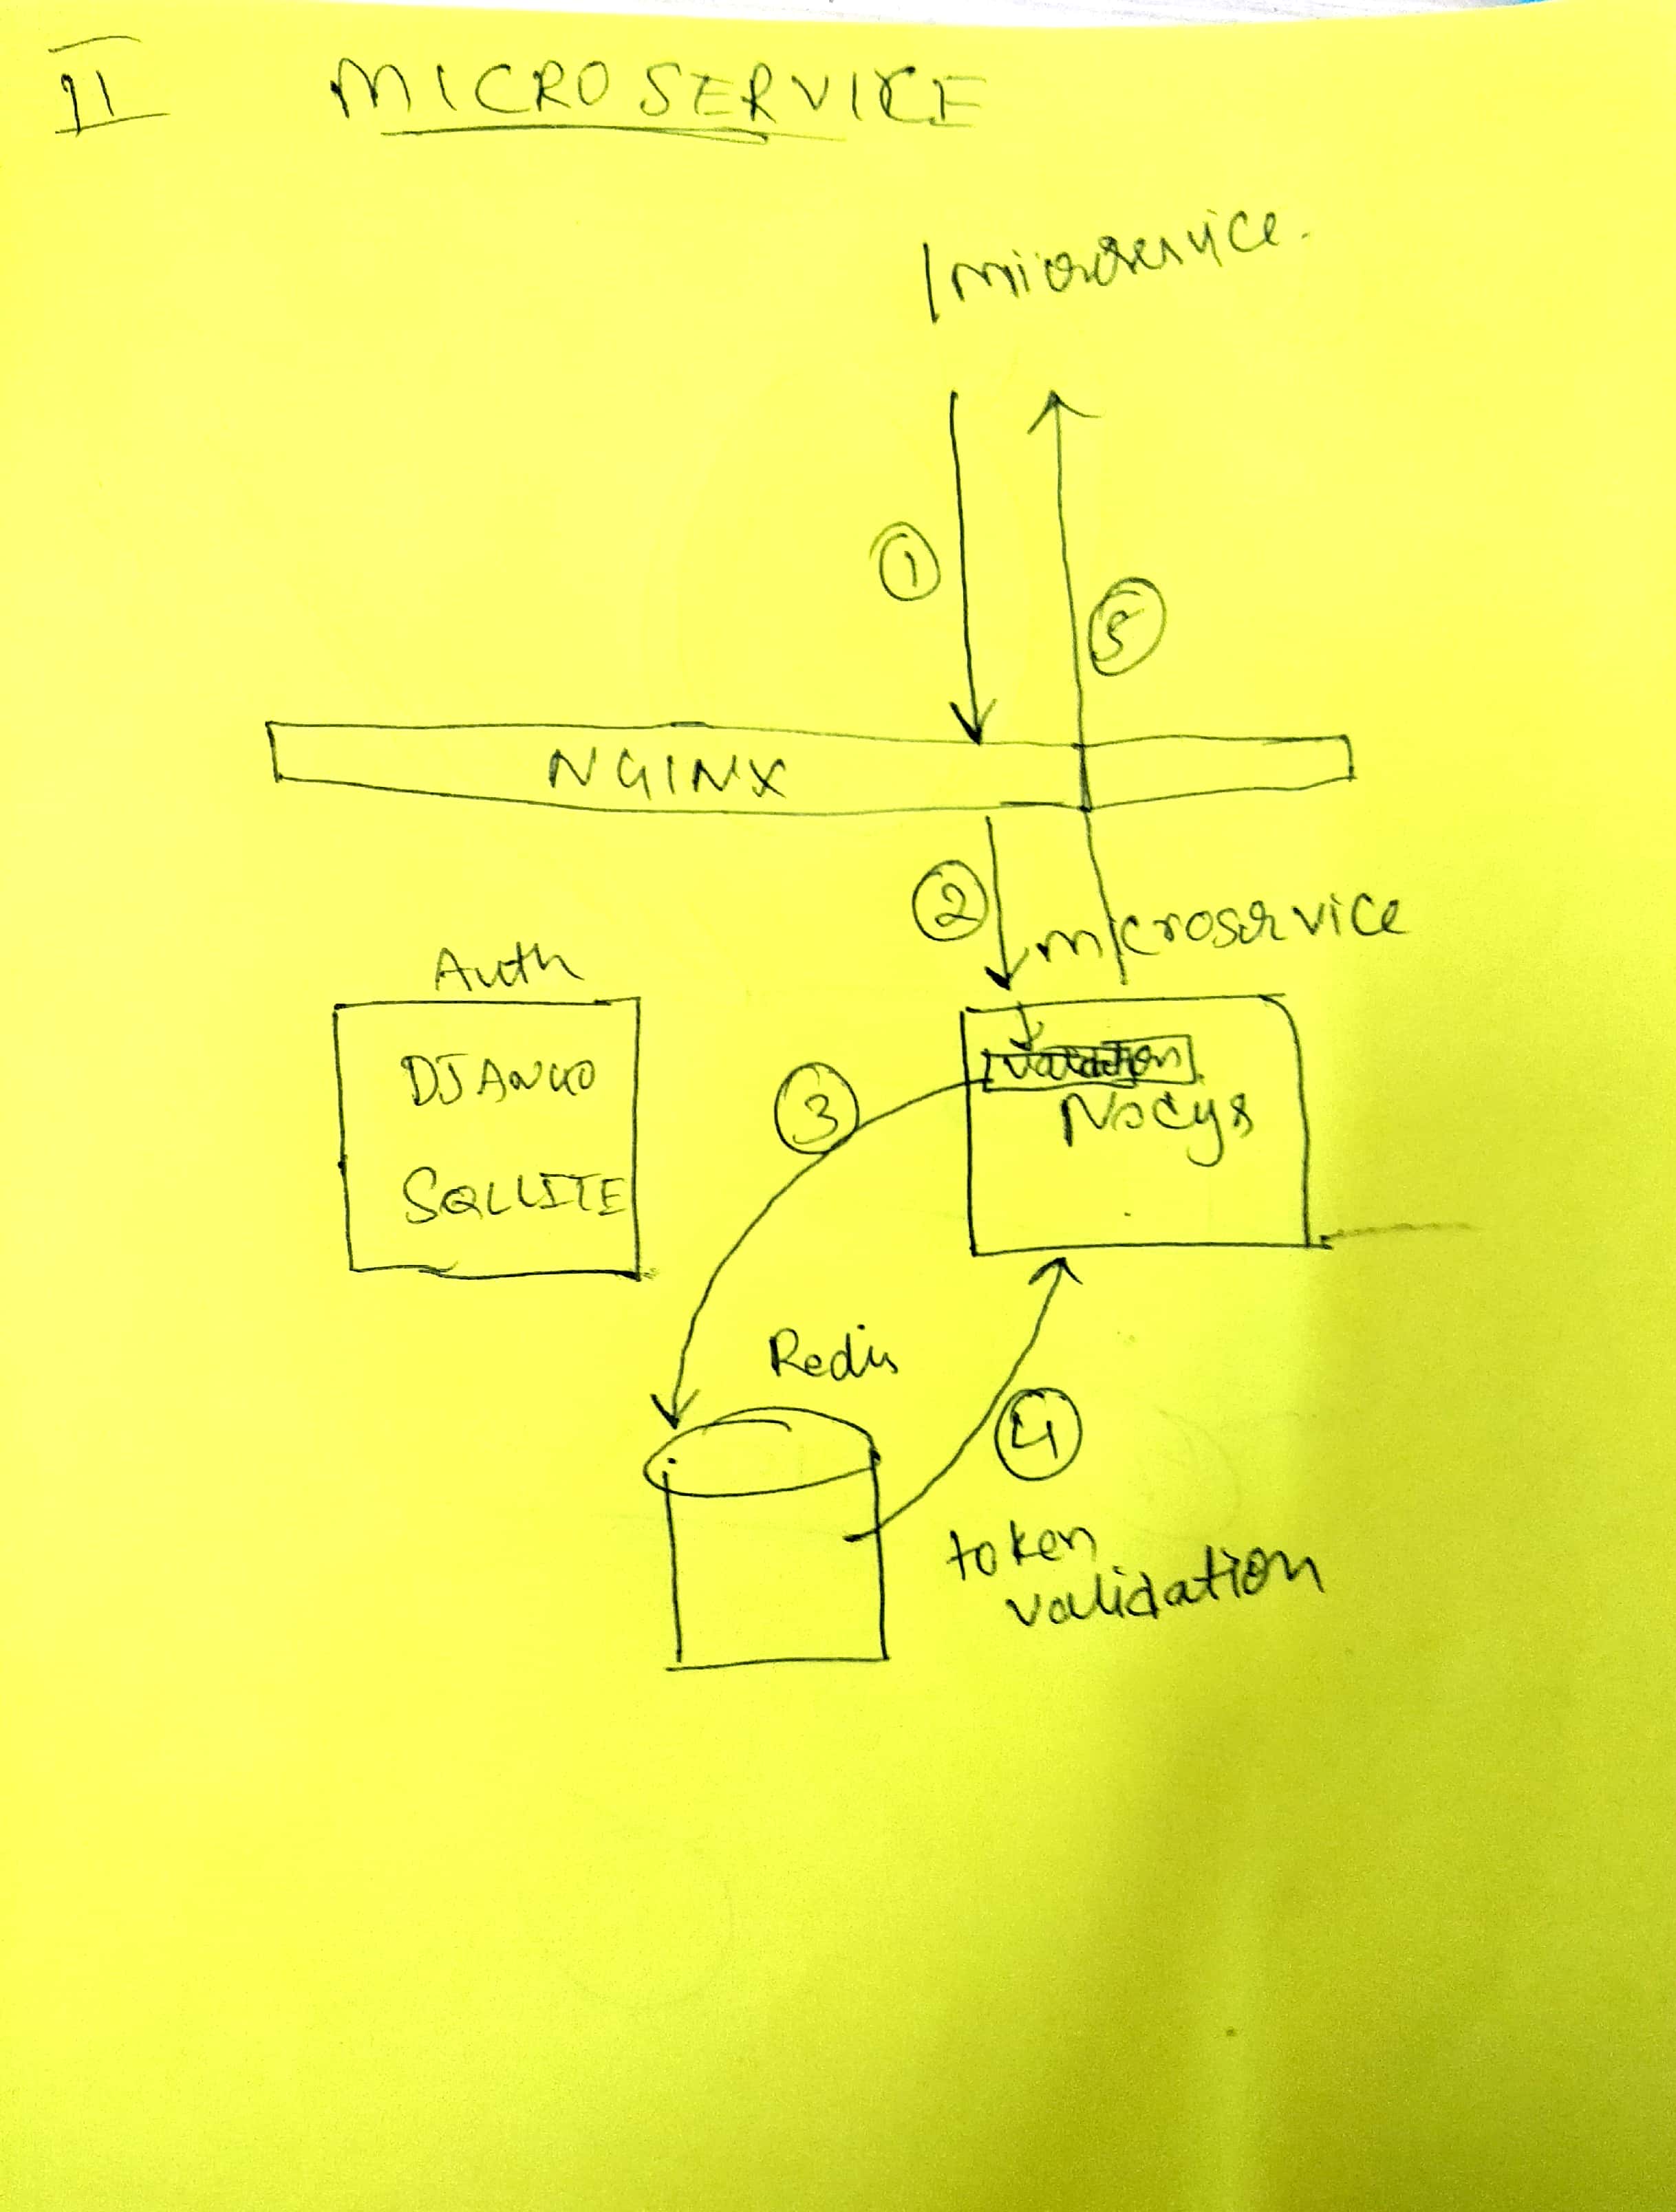 II
MICROSERVICE
/microservice.
1
5
NGINX
2
microservice
Auth
DJANGO
SQLLITE
validation
3
Redis
4
token
validation